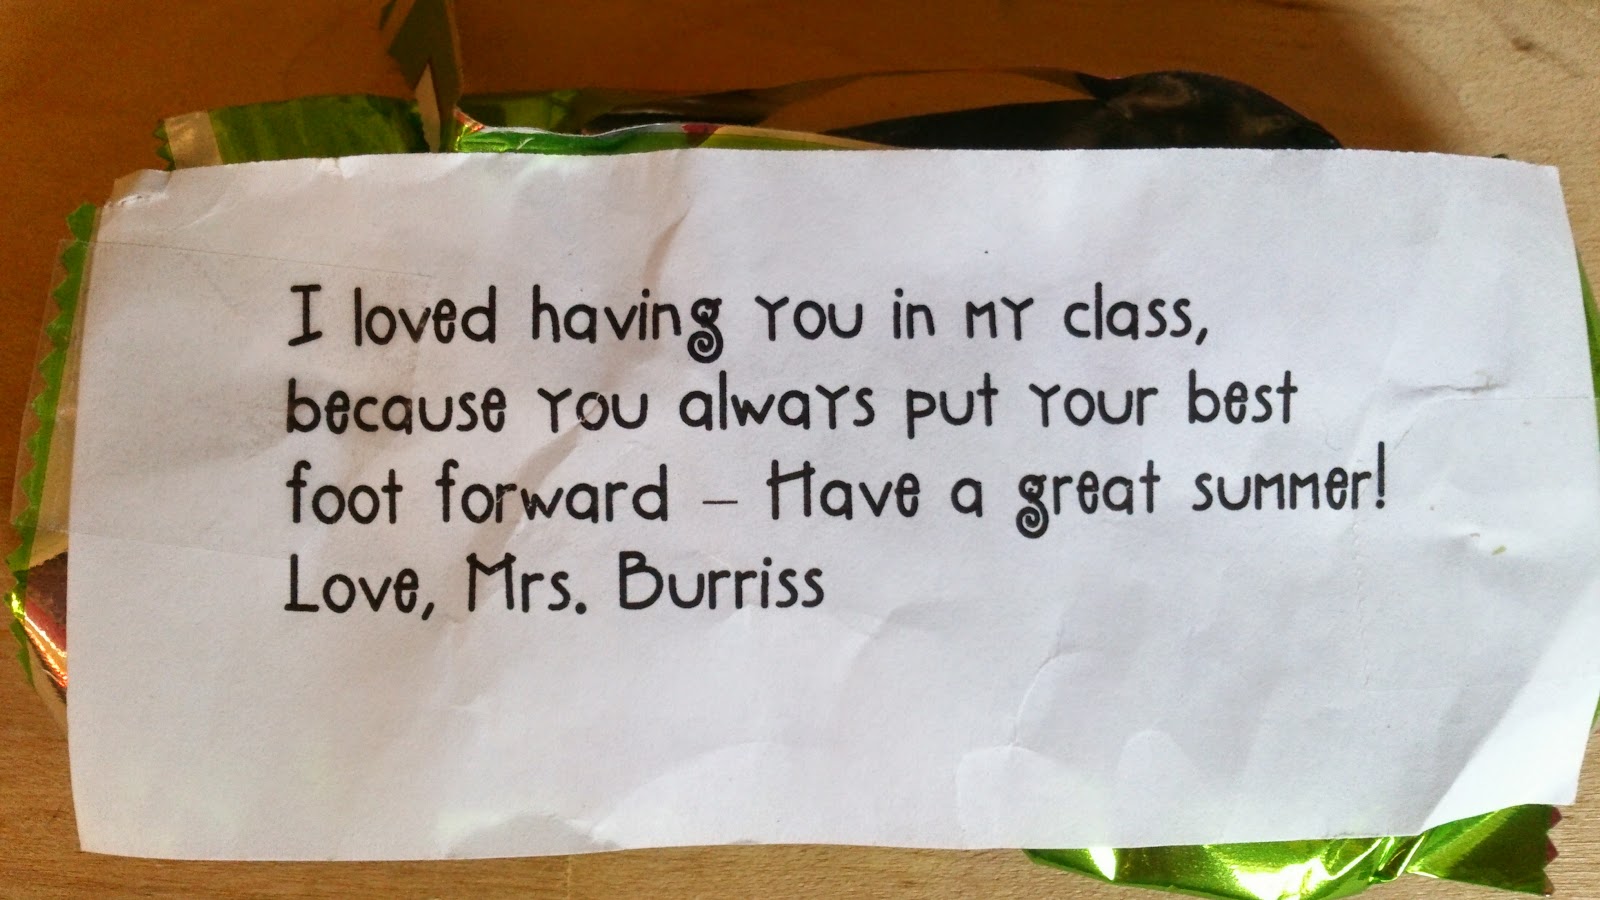 I loved having you in my class,
because you always put your best
foot forward – Have a great summer!
Love, Mrs. Burriss